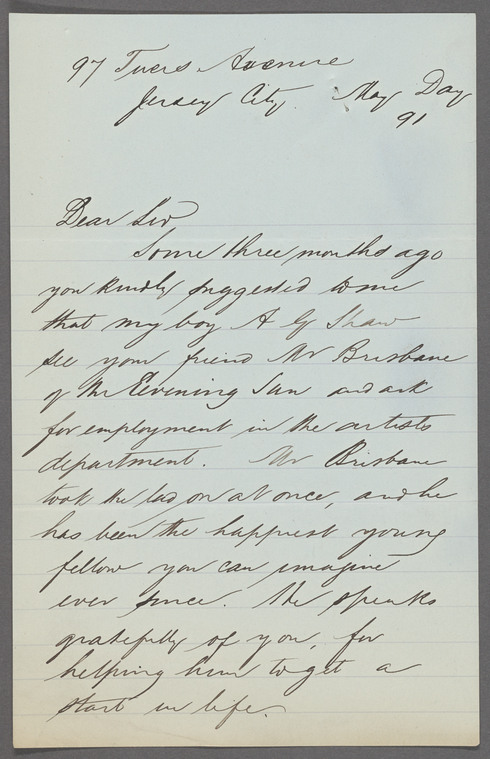 97 Tuers Avenue
Jersey City. May Day
91
Dear Sir
Some three months ago
you kindly suggested to me
that my boy A G Shaw
see your friend Mr Brisbane
of the Evening Sun and ask
for employment in the artists
department. Mr Brisbane
took the lad on at once, and he
has been the happiest young
fellow you can imagine
ever since. He speaks
gratefully of you, for
helping him to get a
start in life.